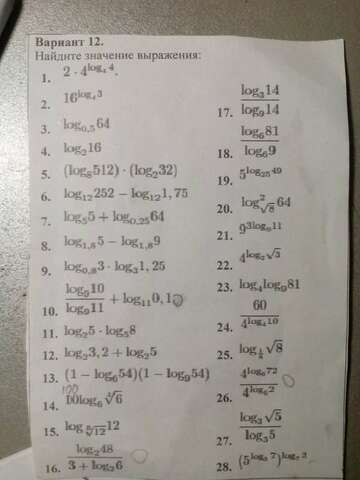 Вариант 12.
Найдите значение выражения:
1. 2 · 4^{log_4 4}.
2. 16^{log_4 3}
3. log_{0,5}64
4. log_2 16
5. (log_8 512) · (log_2 32)
6. log_{12} 252 − log_{12} 1,75
7. log_5 5 + log_{0,25} 64
8. log_{1,8} 5 − log_{1,8} 9
9. log_{0,8} 3 · log_3 1,25
10. \frac{log_9 10}{log_9 11} + log_{11} 0,1
11. log_2 5 · log_5 8
12. log_2 3,2 + log_2 5
13. (1 − log_6 54)(1 − log_9 54)
100
14. log_6 \sqrt[]{6}
15. log_{\sqrt[]{12}} 12
16. \frac{log_2 48}{3 + log_2 6}
17. \frac{log_3 14}{log_9 14}
18. \frac{log_6 81}{log_6 9}
19. 5^{log_{25} 49}
20. log^2_{\sqrt{8}} 64
21. 9^{3log_9 11}
22. 4^{log_2 \sqrt{3}}
23. log_4 log_9 81
24. \frac{60}{4^{log_4 10}}
25. log \sqrt{8}
26. \frac{4^{log_6 72}}{4^{log_6 2}}
27. \frac{log_3 \sqrt{5}}{log_3 5}
28. (5^{log_5 7})^{log_7 2}